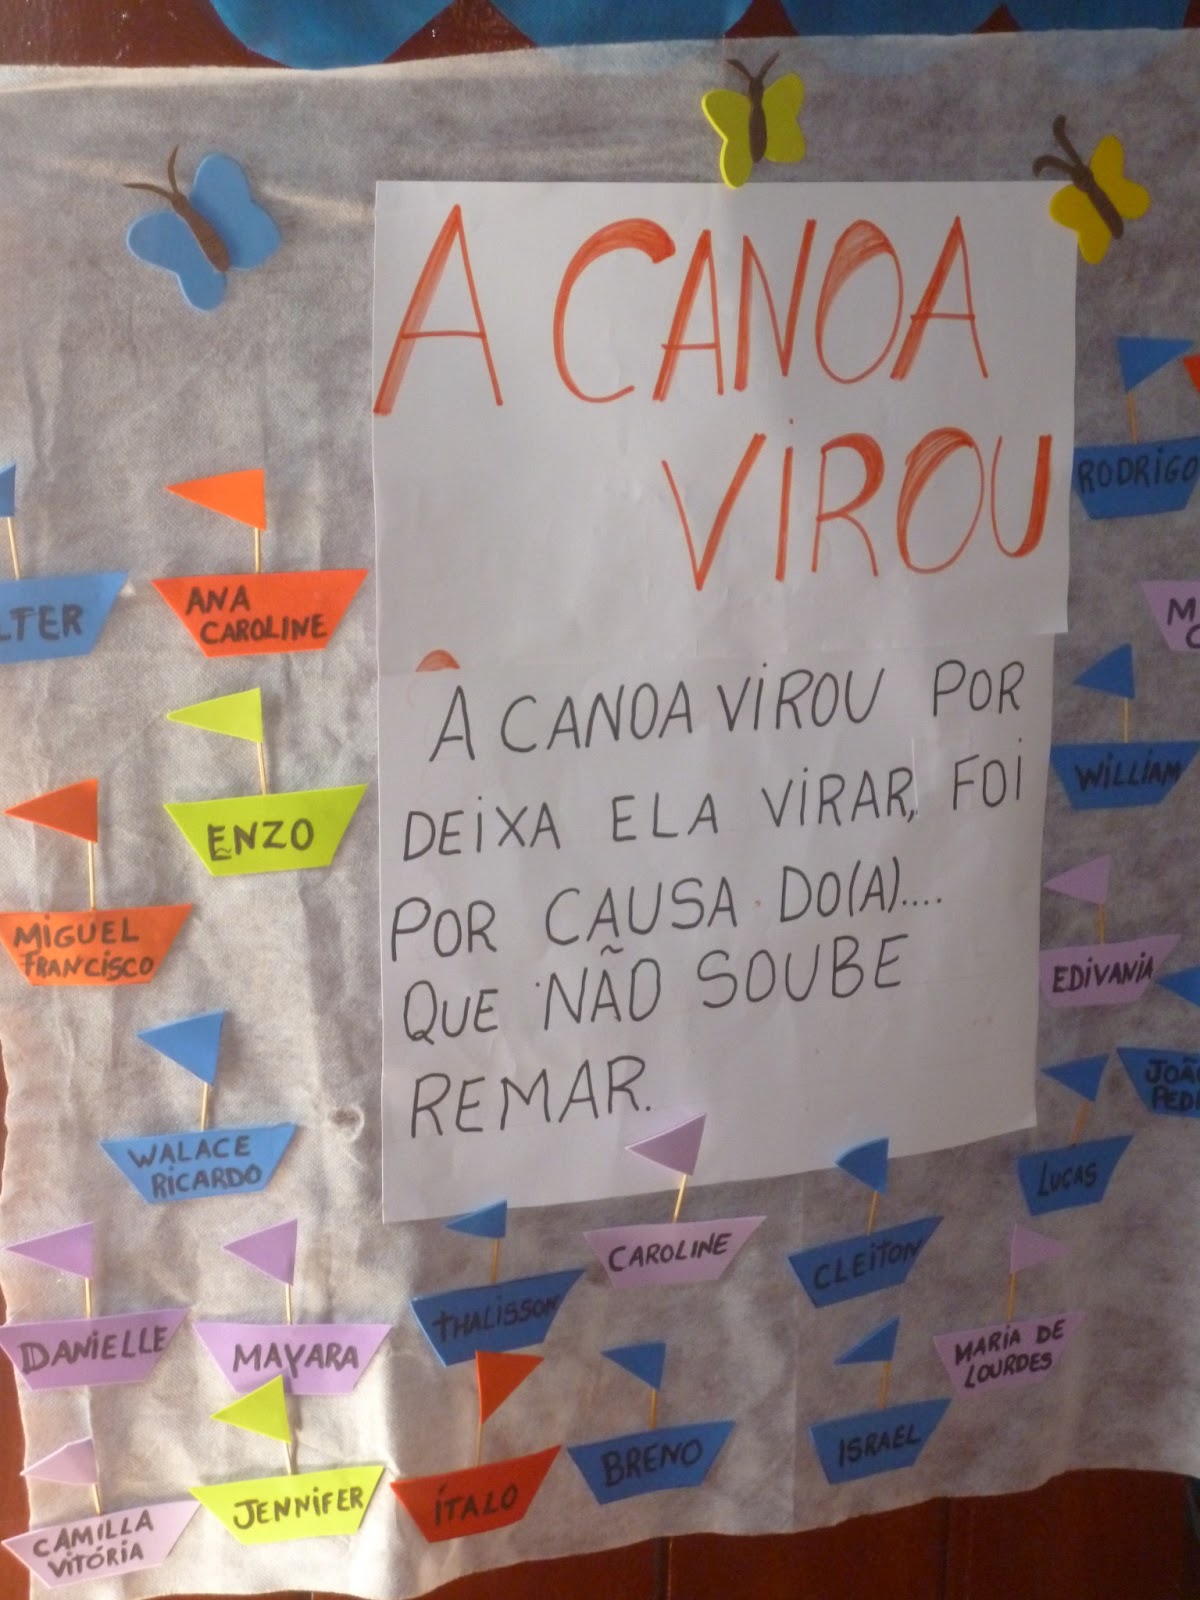 A CANOA
VIROU
A CANOA VIROU POR
DEIXA ELA VIRAR, FOI
POR CAUSA DO(A)....
QUE NÃO SOUBE
REMAR.
RODRIGO
LTER
ANA
CAROLINE
WILLIAM
ENZO
MIGUEL
FRANCISCO
EDIVANIA
WALACE
RICARDO
LUCAS
CAROLINE
CLEITON
THALISSON
DANIELLE
MAYARA
MARIA DE
LOURDES
BRENO
ISRAEL
JENNIFER
ÍTALO
CAMILLA
VITÓRIA